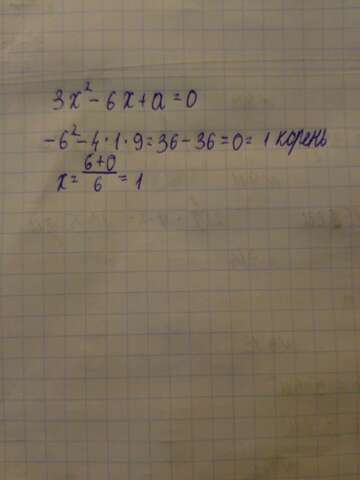 3x² - 6x + a = 0
-6² - 4 · 1 · 9 = 36 - 36 = 0 = 1 корень
x = (6+0)/6 = 1